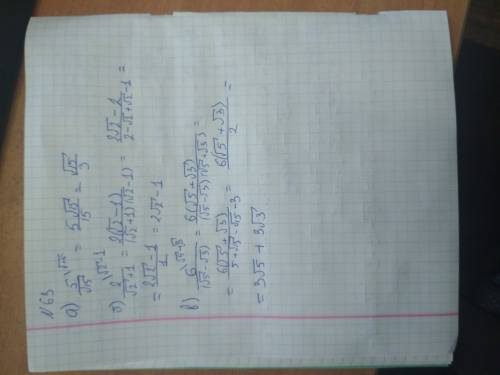 №63
а) 5\√15 / √15 = 5√15 / 15 = √15 / 3
б) 2\√2-1 / √2+1 = 2(√2-1) / (√2+1)(√2-1) = 2√2-1 / 2-√2+√2-1 =
= 2√2-1 / 1 = 2√2-1
в) 6\√5+√3 / (√5-√3) = 6(√5+√3) / (√5-√3)(√5+√3) =
= 6(√5+√3) / 5+√15-√15-3 = 6(√5+√3) / 2 =
= 3√5 + 3√3